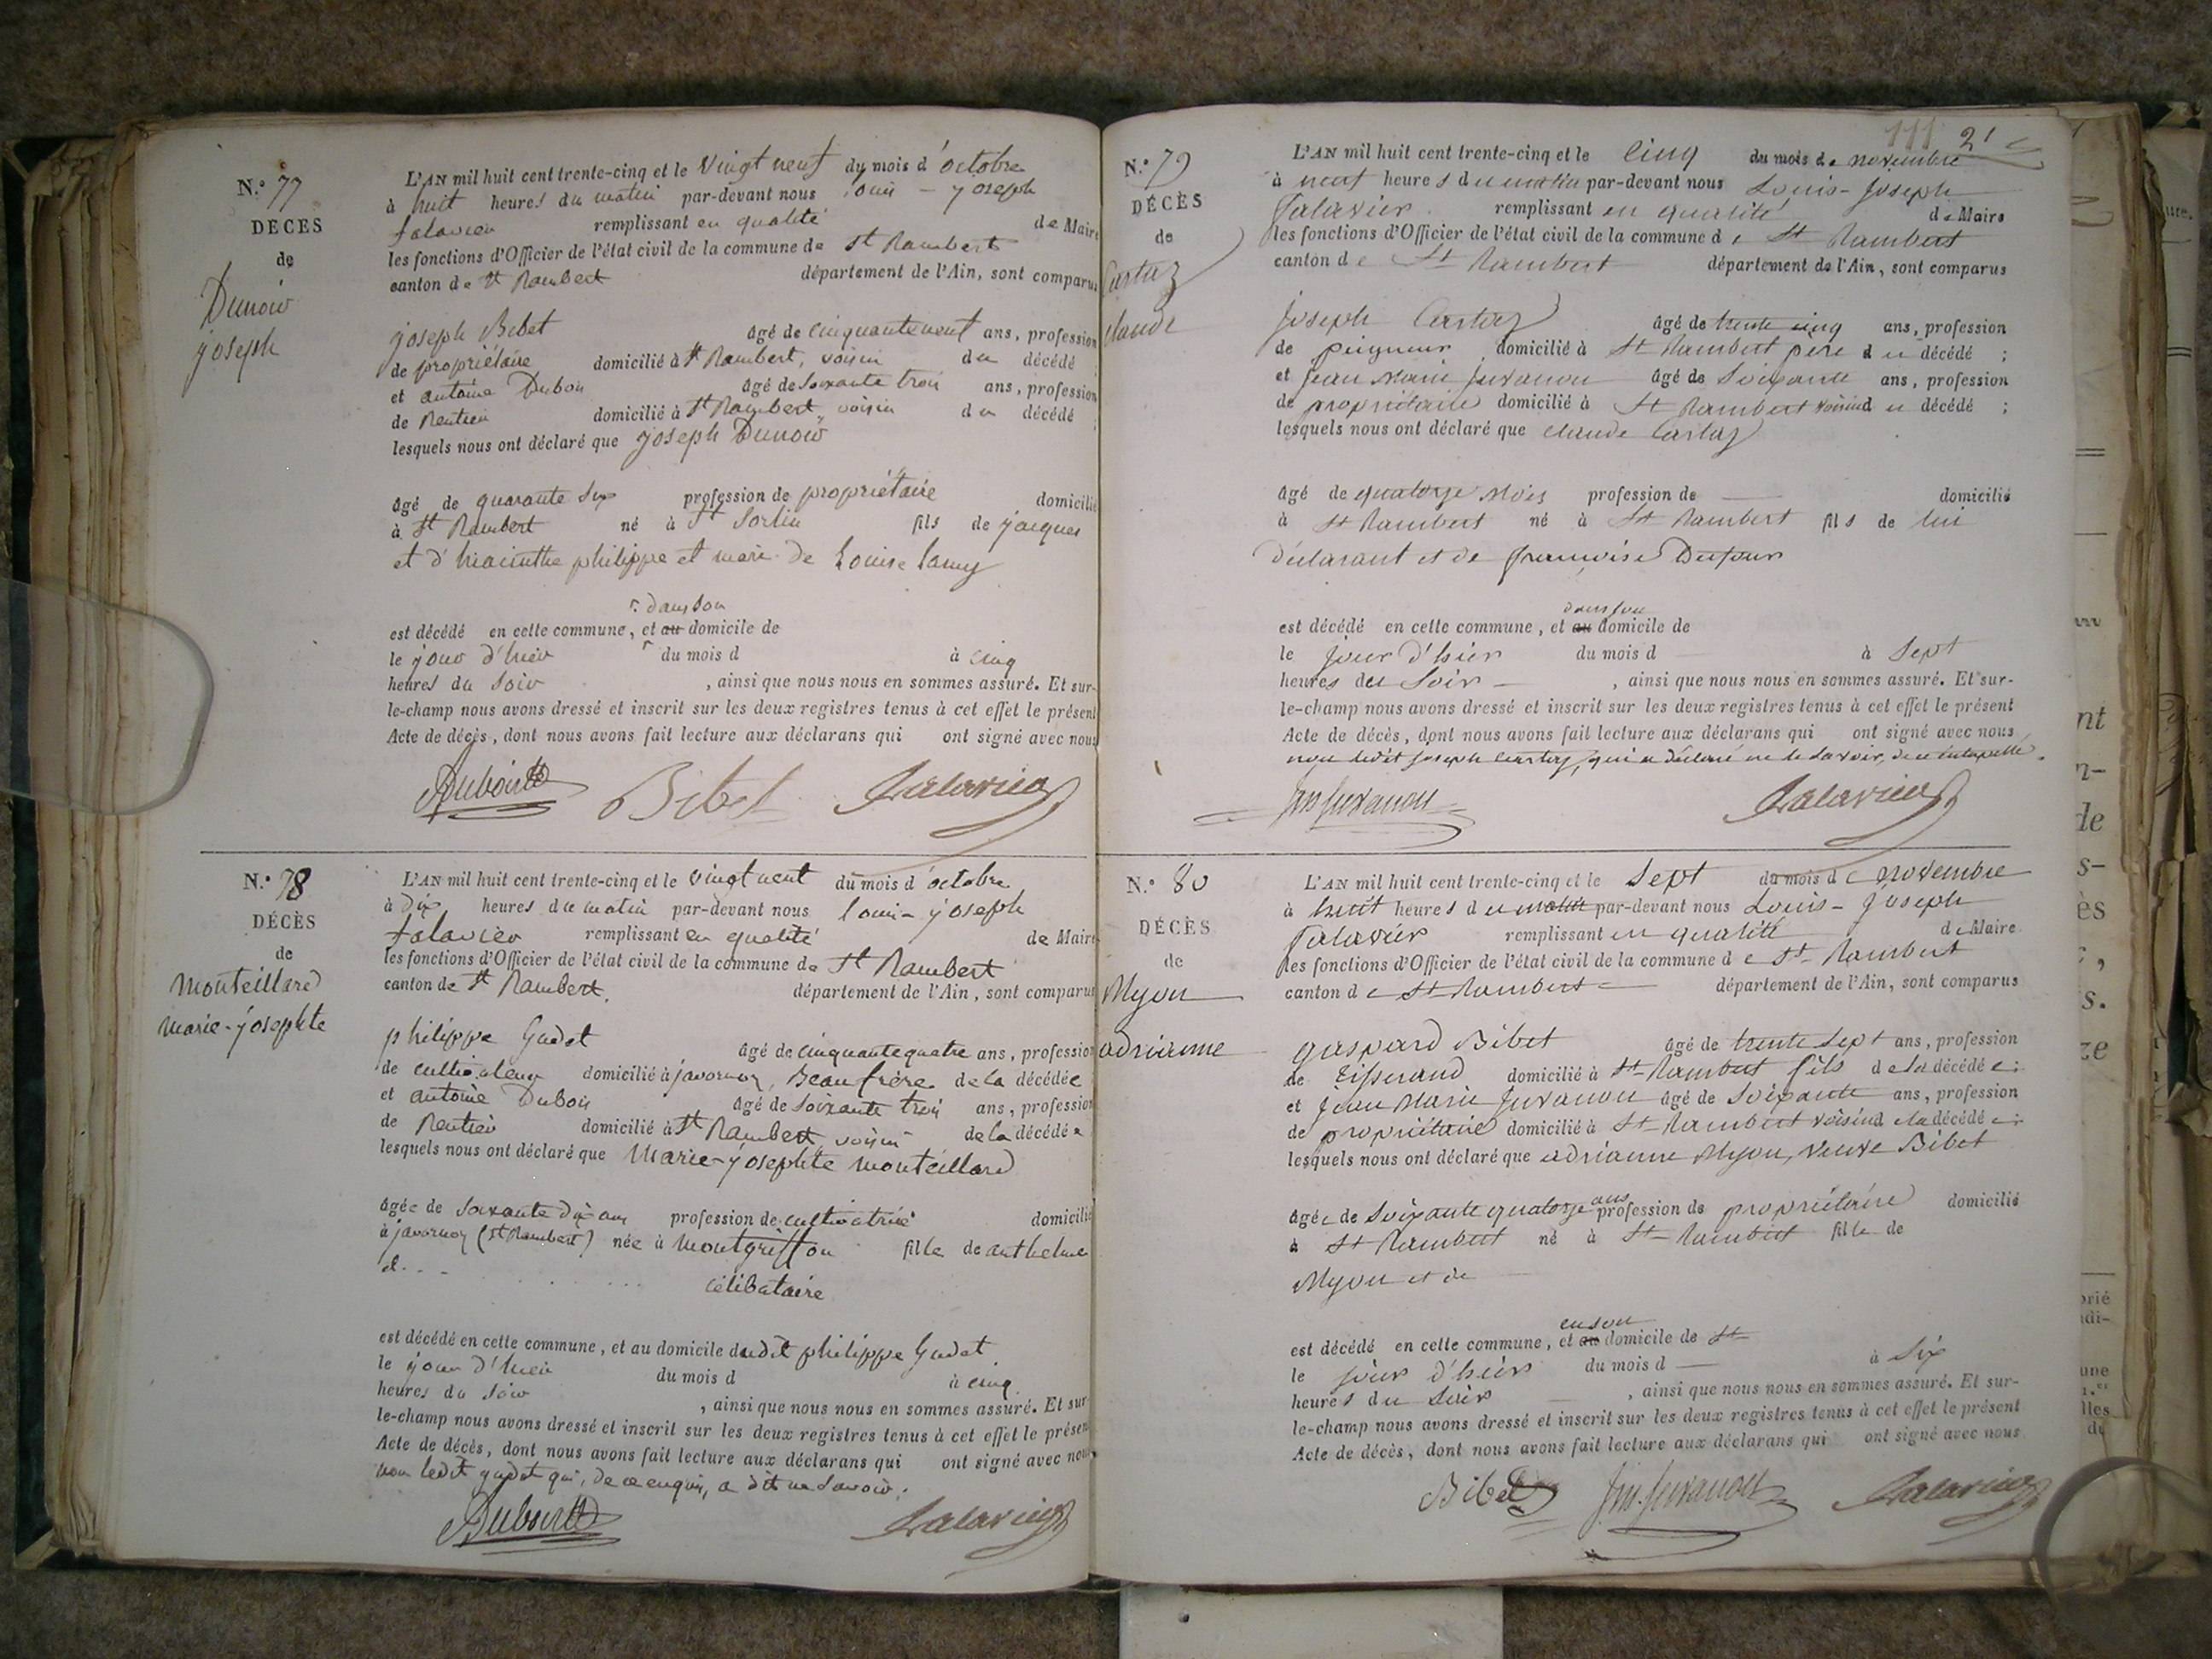 N.° 77
DÉCÈS
de
Dunoir
joseph
L'AN mil huit cent trente-cinq et le vingt neuf du mois d'octobre
à huit heures du matin par-devant nous Louis - joseph
falavier remplissant en qualité de Maire
les fonctions d'Officier de l'état civil de la commune de St Rambert
canton de St Rambert département de l'Ain, sont comparus
joseph Bibet âgé de cinquante neuf ans, profession
de propriétaire domicilié à St Rambert, voisin du décédé
et antoine Dubois âgé de soixante trois ans, profession
de Rentier domicilié à St Rambert, voisin du décédé
lesquels nous ont déclaré que joseph Dunoir
âgé de quarante six profession de propriétaire domicilié
à St Rambert né à St Sorlin fils de jacques
et d'hiacinthe philippe et mari de Louise
dans son
est décédé en cette commune, et au domicile de
le jour d'hier du mois d à cinq
heures du soir , ainsi que nous nous en sommes assuré. Et sur-
le-champ nous avons dressé et inscrit sur les deux registres tenus à cet effet le présent
Acte de décès, dont nous avons fait lecture aux déclarans qui ont signé avec nous
Dubois Bibet Falavier
N.° 78
DÉCÈS
de
Monteillard
marie-josephte
L'AN mil huit cent trente-cinq et le vingt neuf du mois d'octobre
à dix heures du matin par-devant nous Louis-joseph
falavier remplissant en qualité de Maire
les fonctions d'Officier de l'état civil de la commune de St Rambert
canton de St Rambert. département de l'Ain, sont comparus
philippe Gudet âgé de cinquante quatre ans, profession
de cultivateur domicilié à javornoz, Beaufrère de la décédée
et antoine Dubois âgé de soixante trois ans, profession
de Rentier domicilié à St Rambert, voisin de la décédée
lesquels nous ont déclaré que Marie-josephte monteillard
âgée de soixante dix ans profession de cultivatrice domicilié
à javornoz (St Rambert) née à Montgriffon fille de anthelme
et
célibataire
est décédé en cette commune, et au domicile dudit philippe Gudet.
le jour d'hier du mois d à cinq
heures du soir , ainsi que nous nous en sommes assuré. Et sur-
le-champ nous avons dressé et inscrit sur les deux registres tenus à cet effet le présent
Acte de décès, dont nous avons fait lecture aux déclarans qui ont signé avec nous,
non ledit gudet qui, de ce enquis, a dit ne savoir.
Dubois Falavier
111 21
N.° 79
DÉCÈS
de
Cartaz
claude
L'AN mil huit cent trente-cinq et le cinq du mois de novembre
à neuf heures du matin par-devant nous Louis-Joseph
Falavier remplissant en qualité de Maire
les fonctions d'Officier de l'état civil de la commune de St Rambert
canton de St Rambert département de l'Ain, sont comparus
Joseph Cartaz âgé de trente cinq ans, profession
de peigneur domicilié à St Rambert père du décédé ;
et Jean Marie Juvanon âgé de Soixante ans, profession
de propriétaire domicilié à St Rambert voisin du décédé ;
lesquels nous ont déclaré que claude Cartaz
âgé de quatorze Mois profession de — domicilié
à St Rambert né à St Rambert fils de lui
déclarant et de françoise Dufour
dans son
est décédé en cette commune, et au domicile de
le jour d'hier du mois d — à Sept
heures du Soir — , ainsi que nous nous en sommes assuré. Et sur-
le-champ nous avons dressé et inscrit sur les deux registres tenus à cet effet le présent
Acte de décès, dont nous avons fait lecture aux déclarans qui ont signé avec nous
non ledit Joseph Cartaz, qui a déclaré ne le savoir, de ce interpellé.
Jm Juvanon Falavier
N.° 80
DÉCÈS
de
Myon
adrianne
L'AN mil huit cent trente-cinq et le Sept du mois de novembre
à huit heures du matin par-devant nous Louis-Joseph
Falavier remplissant en qualité de Maire
les fonctions d'Officier de l'état civil de la commune de St Rambert
canton de St Rambert — département de l'Ain, sont comparus
gaspard Bibet âgé de trente Sept ans, profession
de Tisserand domicilié à St Rambert fils de la décédée ;
et Jean Marie Juvanon âgé de Soixante ans, profession
de propriétaire domicilié à St Rambert voisin de la décédée ;
lesquels nous ont déclaré que adrianne Myon, veuve Bibet
ans
âgée de Soixante quatorze profession de propriétaire domicilié
à St Rambert né à St Rambert fille de
Myon et de
en son
est décédé en cette commune, et au domicile de St
le jour d'hier du mois d — à Six
heures du Soir — , ainsi que nous nous en sommes assuré. Et sur-
le-champ nous avons dressé et inscrit sur les deux registres tenus à cet effet le présent
Acte de décès, dont nous avons fait lecture aux déclarans qui ont signé avec nous
Bibet Jm. Juvanon Falavier